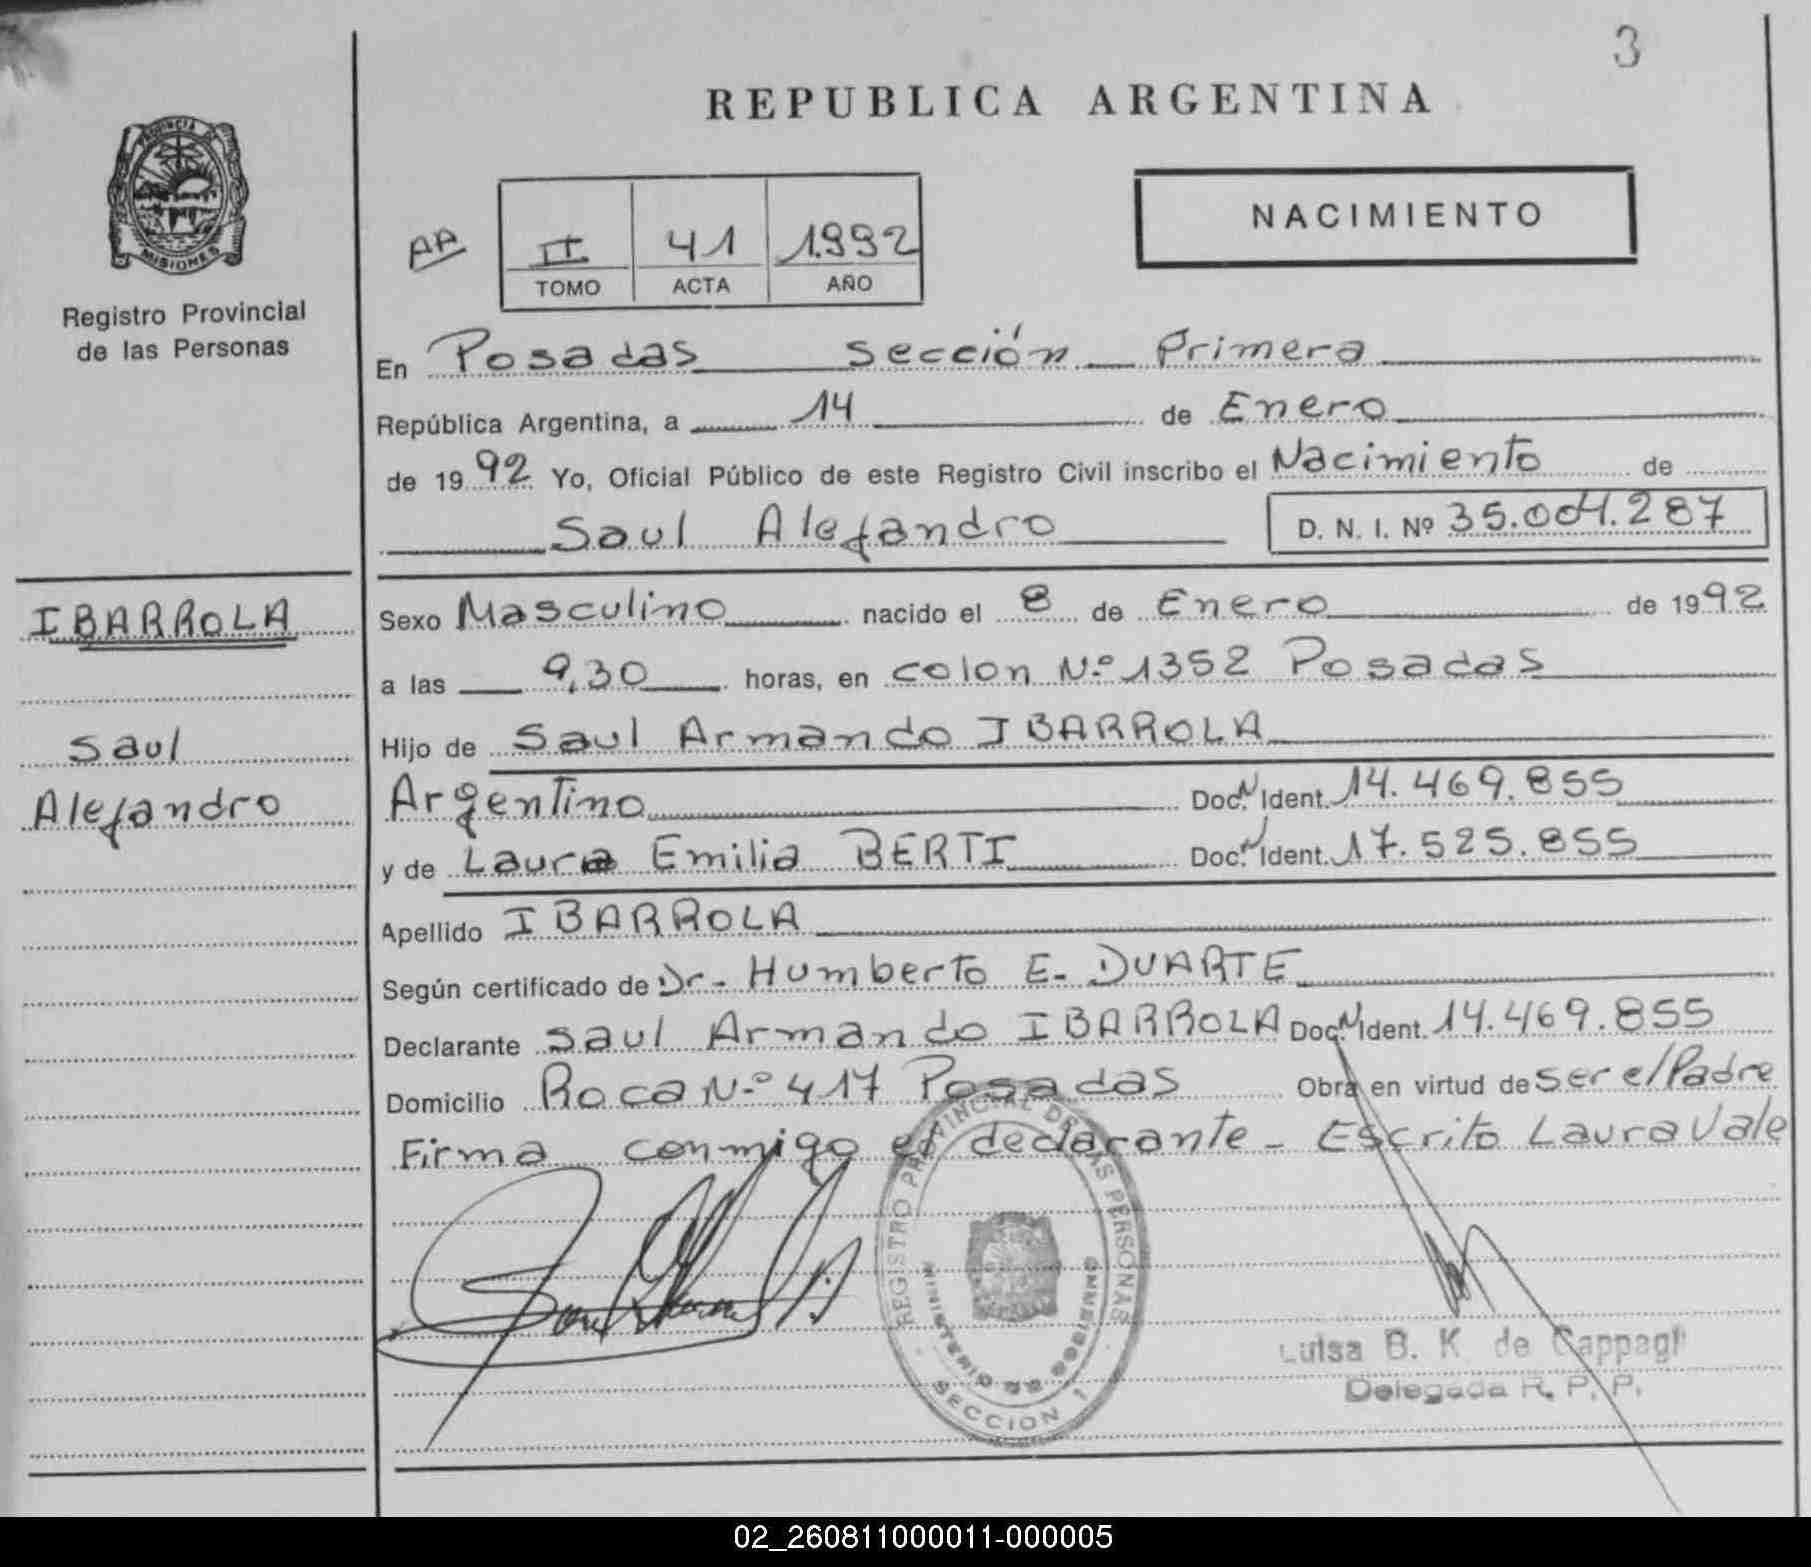 3
REPUBLICA ARGENTINA
PROVINCIA DE
MISIONES
Registro Provincial
de las Personas
AA
II 41 1992
TOMO ACTA AÑO
NACIMIENTO
En Posadas sección Primera
República Argentina, a 14 de Enero
de 1992 Yo, Oficial Público de este Registro Civil inscribo el Nacimiento de
Saul Alejandro D. N. I. Nº 35.004.287
IBARROLA
Saul
Alejandro
Sexo Masculino nacido el 8 de Enero de 1992
a las 9,30 horas, en colon Nº 1352 Posadas
Hijo de Saul Armando IBARROLA
Argentino Doc. N Ident. 14.469.855
y de Laura Emilia BERTI Doc. N Ident. 17.525.855
Apellido IBARROLA
Según certificado de Dr- Humberto E. DUARTE
Declarante Saul Armando IBARROLA Doc. N Ident. 14.469.855
Domicilio Roca Nº 417 Posadas Obra en virtud de ser el Padre
Firma conmigo el declarante - Escrito Laura Vale
REGISTRO PROVINCIAL DE LAS PERSONAS
MINISTERIO DE GOBIERNO
SECCION 1
Luisa B. K de Cappagli
Delegada R. P. P.
02_260811000011-000005